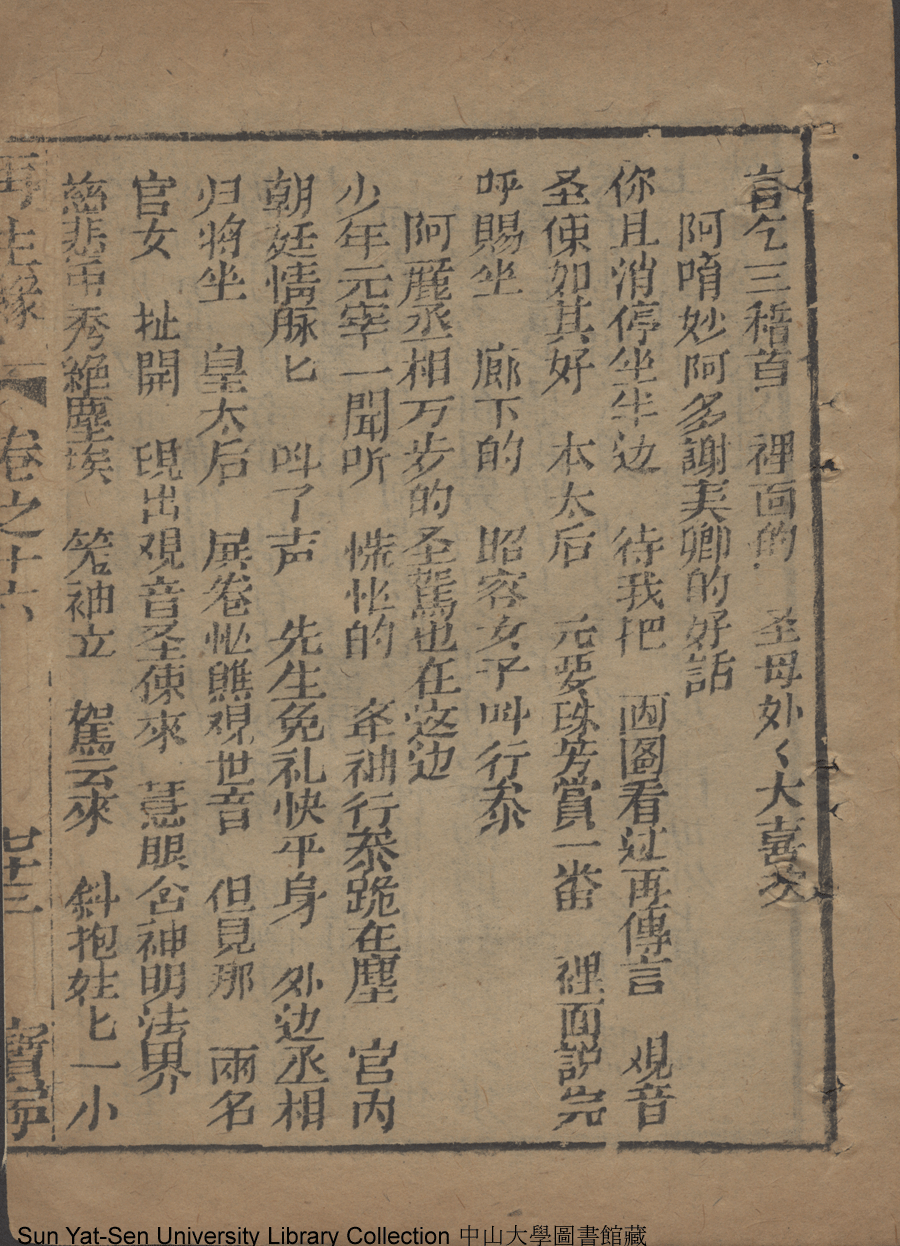 言乞三稽首　裡面的　圣母外〻大喜欢
阿唷妙阿多謝夫卿的好話
你且消停坐半边　待我把　画圖看过再傳言　观音
圣像如其好　本太后　元要珠芳賞一番　裡面説完
呼賜坐　廊下的　昭容女子叫行叅
阿麗丞相万步的圣駕也在这边
少年元宰一聞听　慌忙的　牽袖行叅跪在塵　宮内
朝廷情脉匕　叫了声　先生免礼快平身　外边丞相
归将坐　皇太后　展卷忙瞧观世音　但見那　兩名
官女　扯開　現出观音圣像來　慧眼含神明法界
慈悲再秀絶塵埃　笼袖立　駕云來　斜抱娃匕一小
再生緣　卷之十六　廿十三　寳寧
Sun Yat-Sen University Library Collection 中山大學圖書館藏